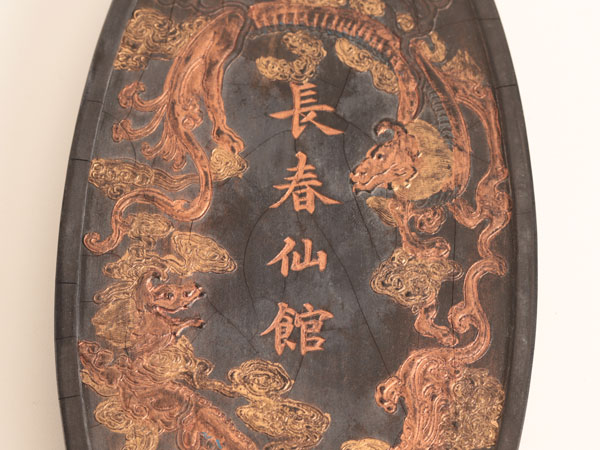 長春仙館